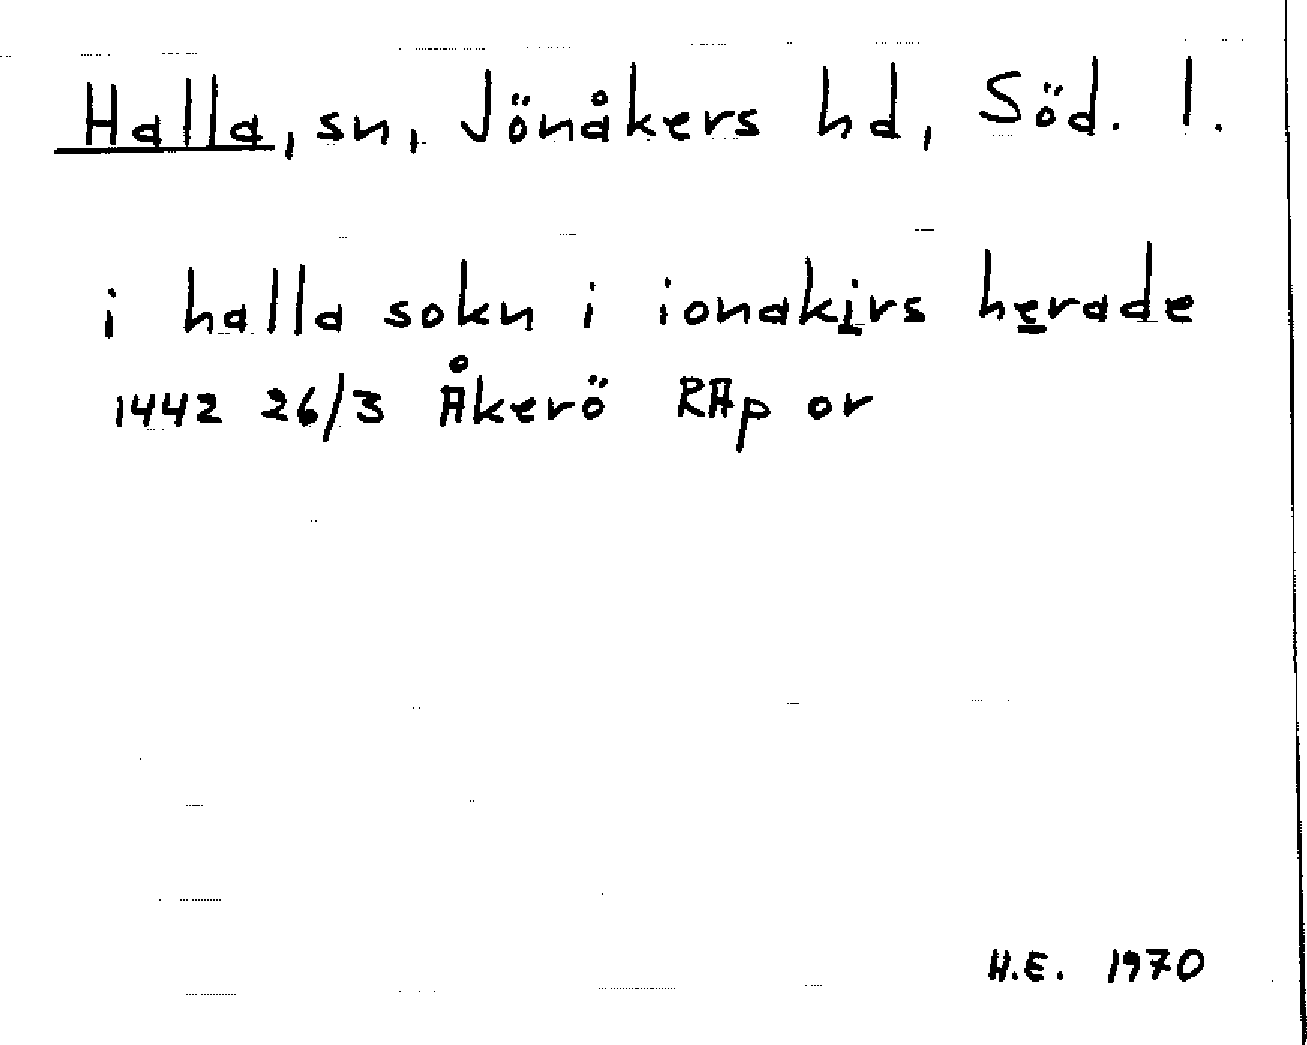 Halla, sn, Jönåkers hd, Söd. l.
i halla sokn i ionakirs herade
1442 26/3 Åkerö RAp or
H.E. 1970